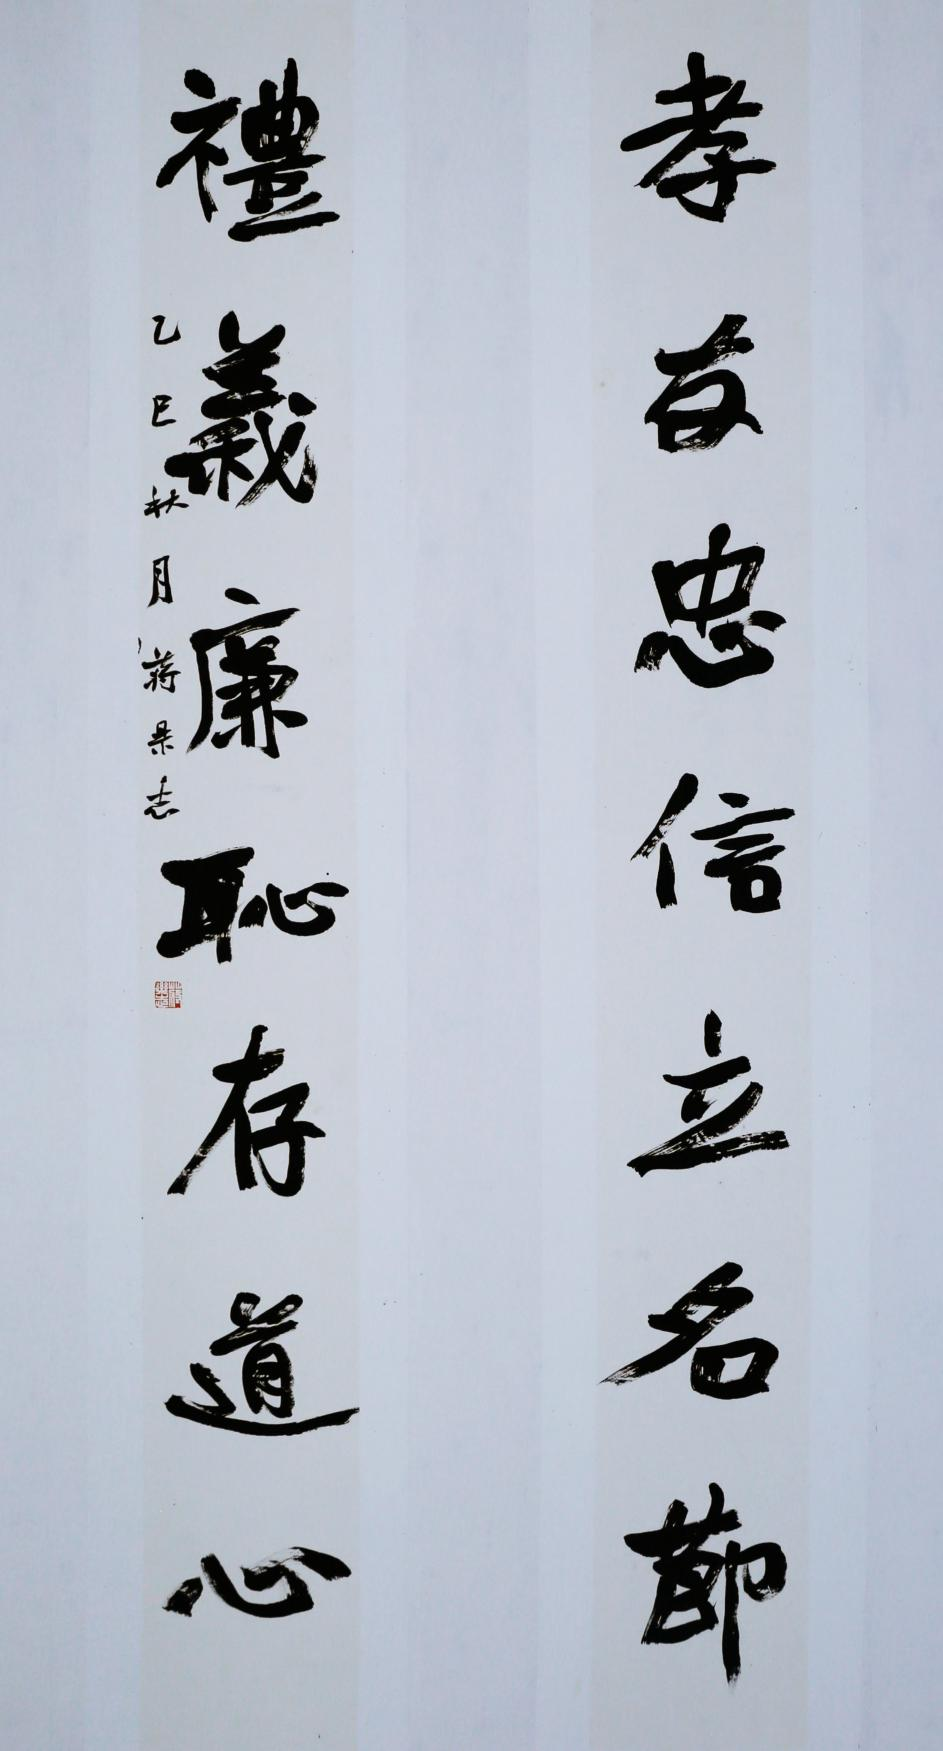 孝友忠信立名節
禮義廉恥存道心
乙巳秋月蔣杲志